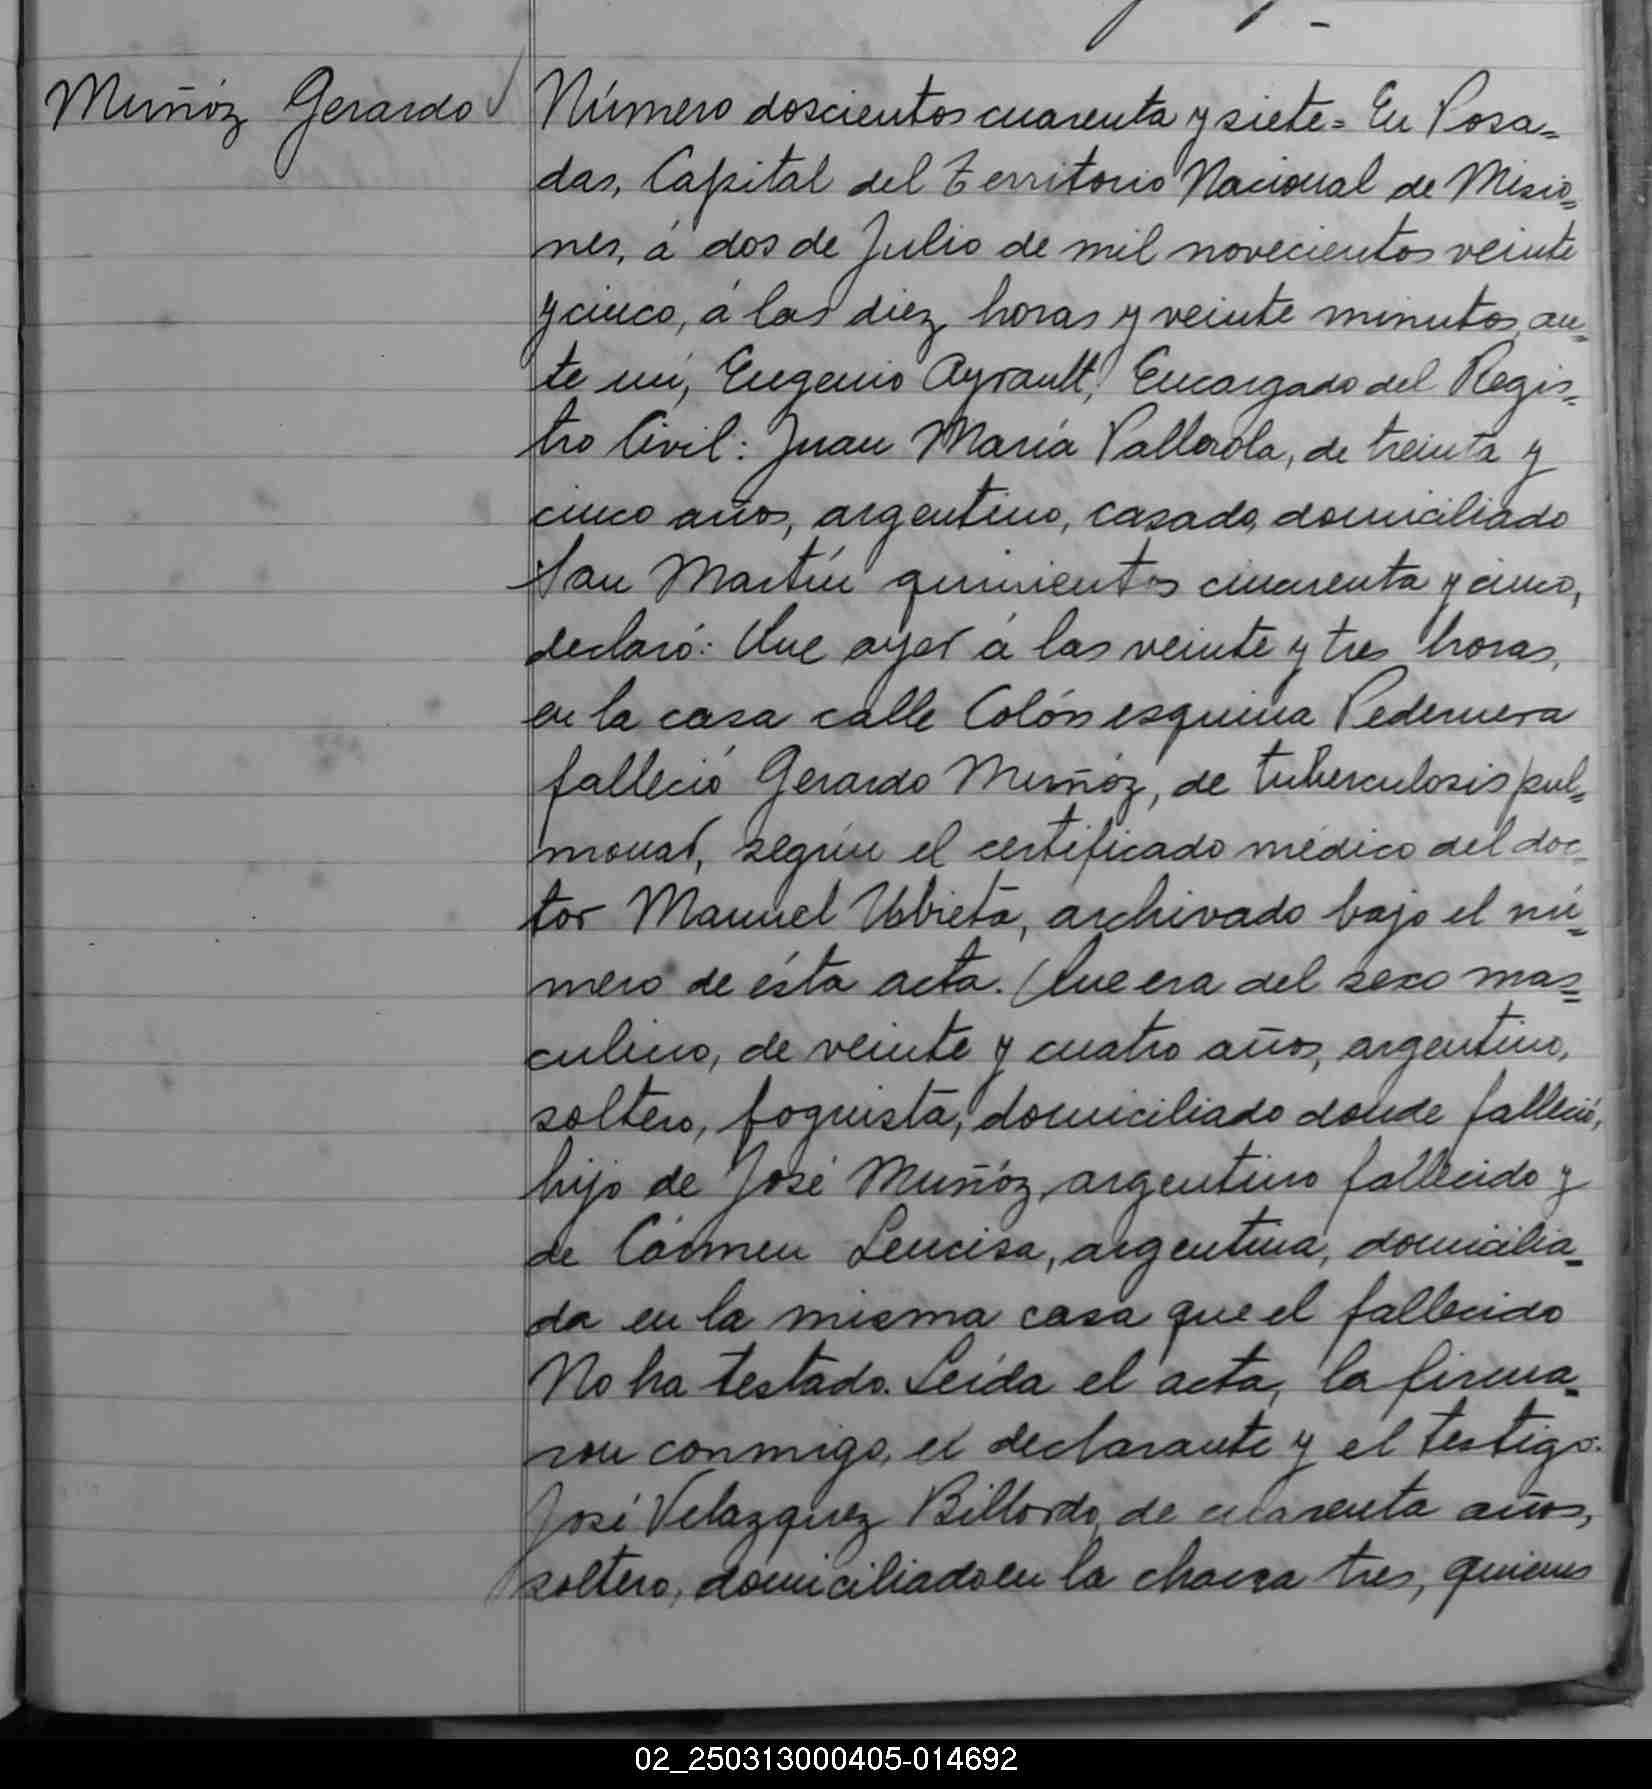 Muñóz Gerardo
Número doscientos cuarenta y siete = En Posa=
das, Capital del Territorio Nacional de Misio=
nes, á dos de Julio de mil novecientos veinte
y cinco, á las diez horas y veinte minutos, an=
te mí, Eugenio Ayrault, Encargado del Regis=
tro Civil: Juan María Vallerola, de treinta y
cinco años, argentino, casado, domiciliado
San Martín quinientos cincuenta y cinco,
declaró: Que ayer á las veinte y tres horas,
en la casa calle Colón esquina Pedernera
falleció Gerardo Muñóz, de tuberculosis pul=
monar, según el certificado médico del doc=
tor Manuel Ubieta, archivado bajo el nú=
mero de ésta acta. Que era del sexo mas=
culino, de veinte y cuatro años, argentino,
soltero, foguista, domiciliado donde falleció,
hijo de José Muñóz, argentino fallecido y
de Cármen Lencisa, argentina, domicilia=
da en la misma casa que el fallecido
No ha testado. Leída el acta, la firma=
ron conmigo, el declarante y el testigo:
José Velazquez Billordo, de cuarenta años,
soltero, domiciliado en la chacra tres, quienes
02_250313000405-014692